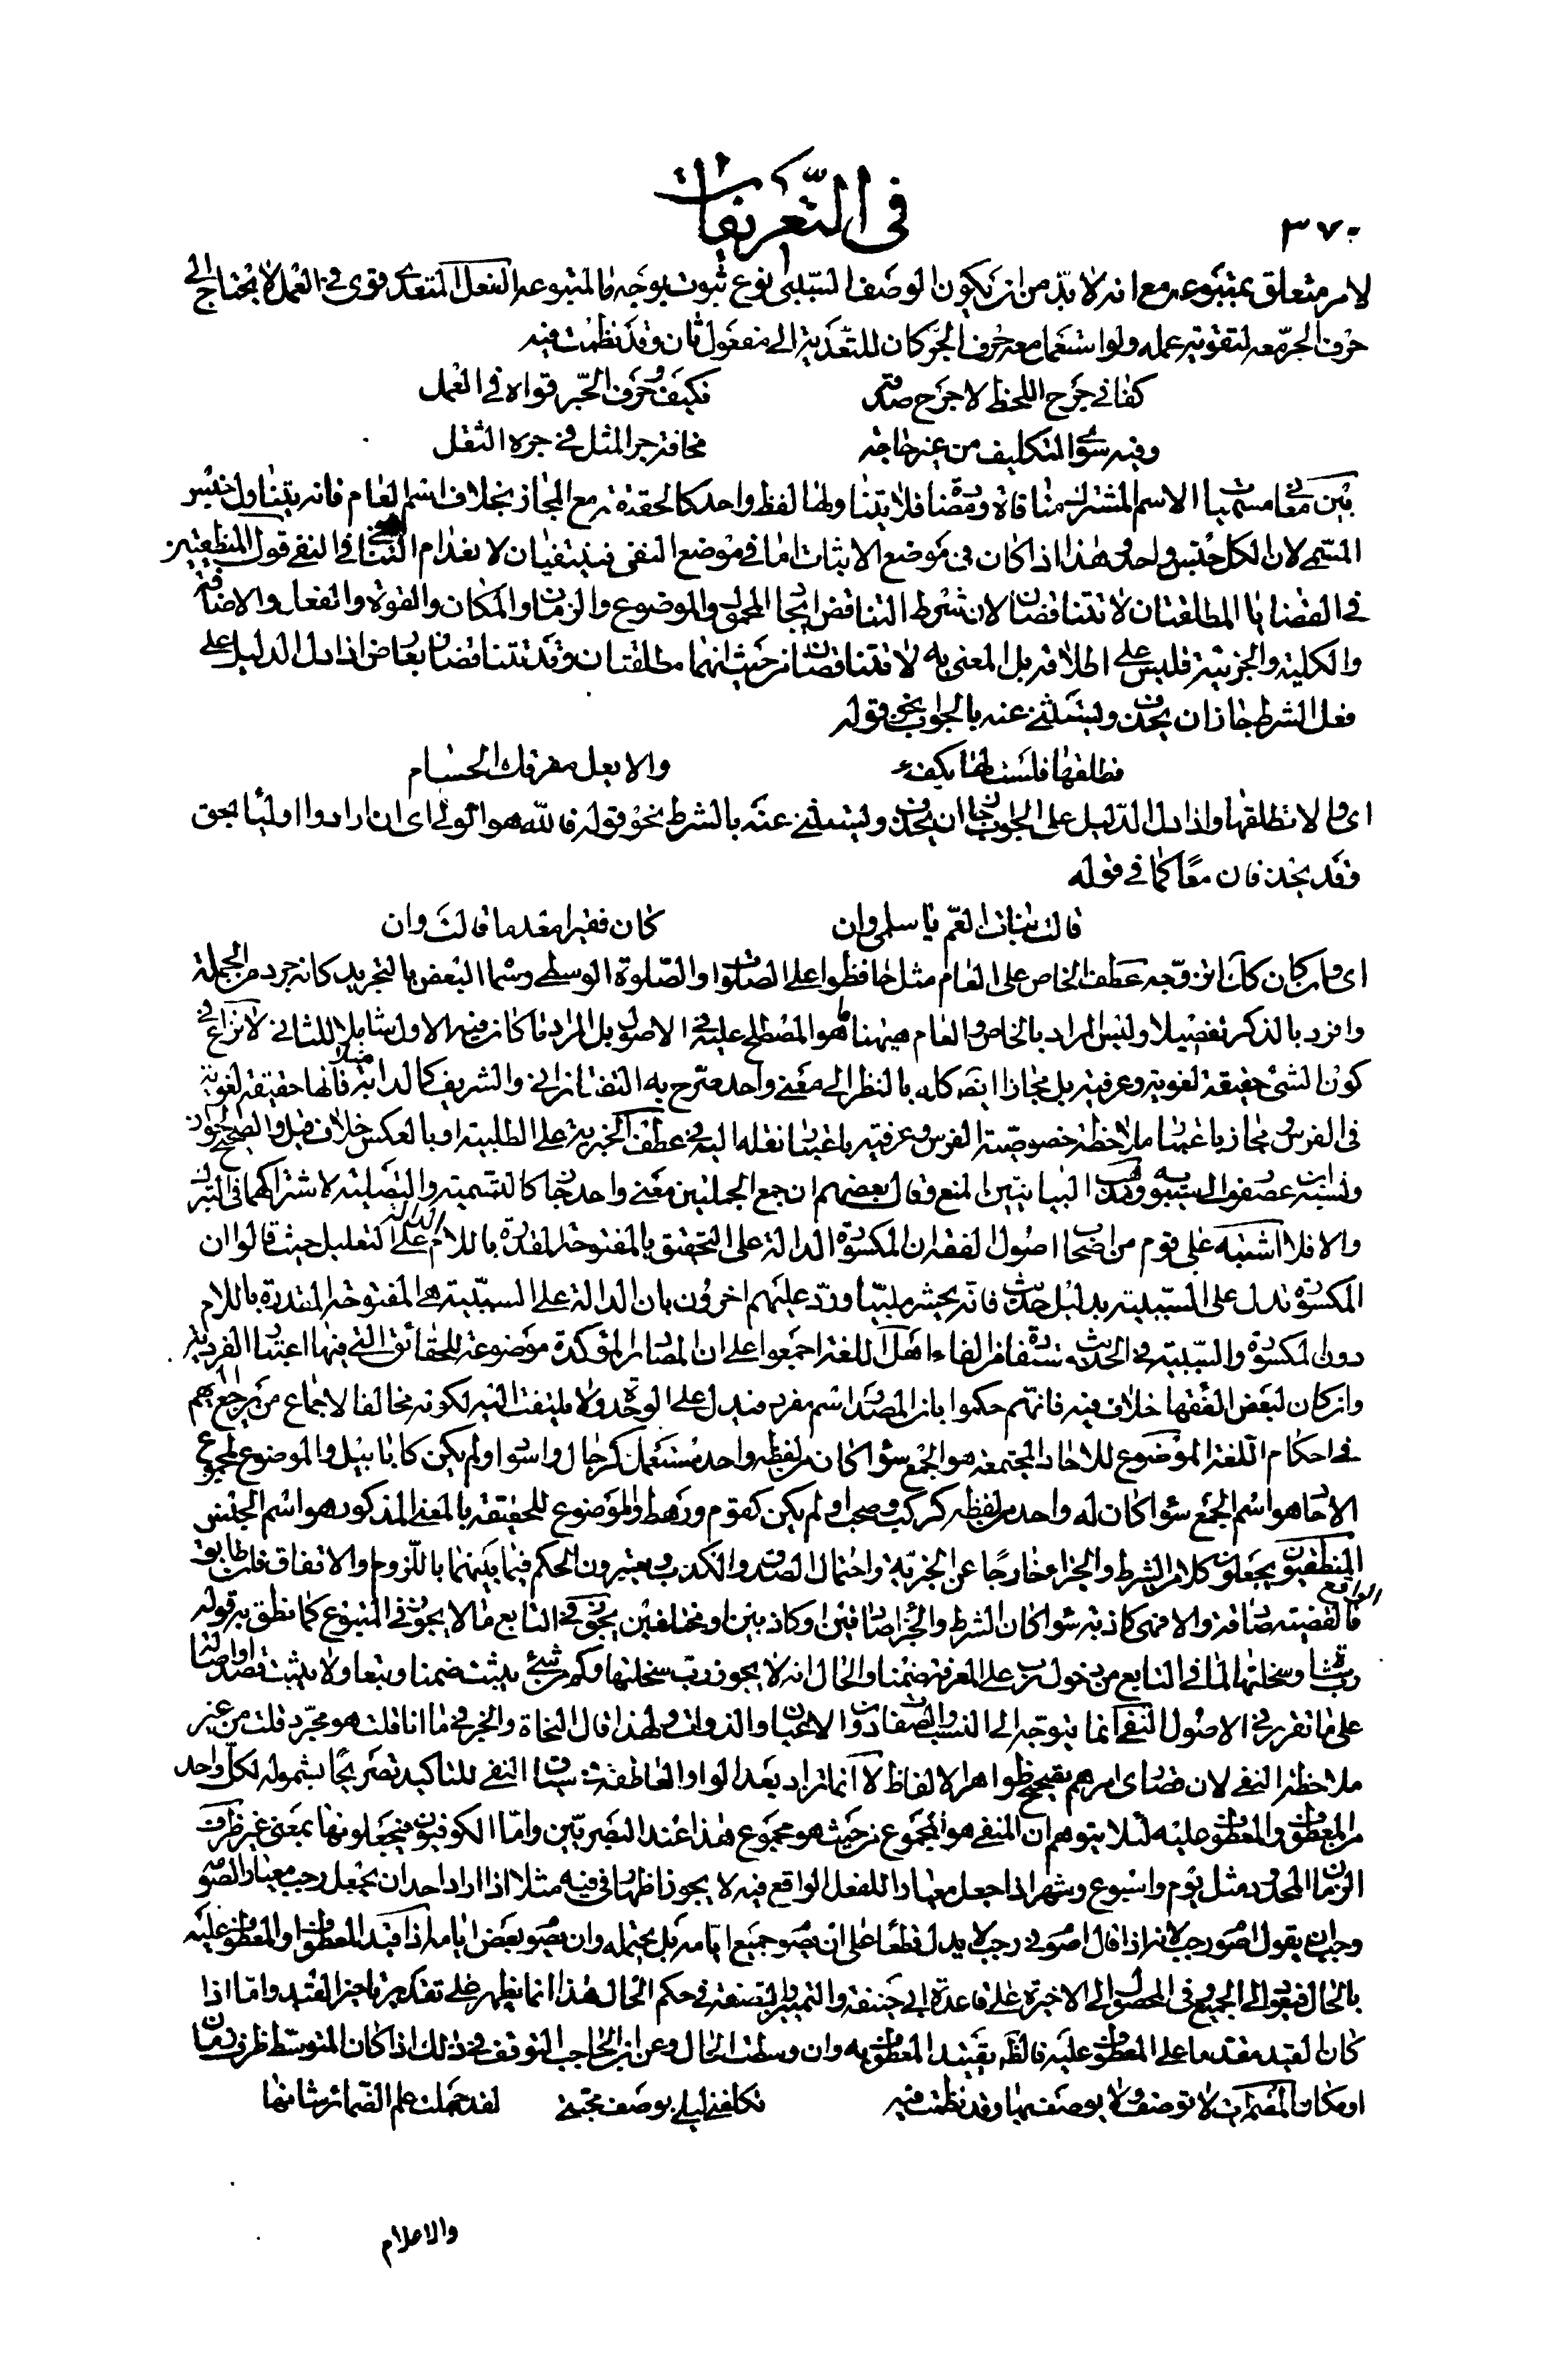 في التعريفات
٣٧٠
لامر متعلق بمتبوعه مع انه لا بد من ان يكون الوصف السببى نوع ثبوت بوجه ما لمتبوعه الفعل المتعدى قوى في العمل لا يحتاج الى
حرف الجر معه لتقويته عمله ولو استعمل معه حرف الجر كان للتعدية الى مفعول ثان وقد نظمت فيه
كفانى جرح اللحظ لا جرح صدقه فكيف وحرف الجر قواه في العمل
وفيه سؤال لتكليف من غير حاجة مخافة جر المثل في جره الثقل
بين معانى مسميات الاسم المشترك منافاة ومضادة فلا يتناولها لفظ واحد كالحقيقة مع المجاز بخلاف اسم العام فانه يتناول جنس
المسمى لان الكل جنس واحد وهذا اذا كان في موضع الاثبات اما في موضع النفى فينتفيان لانعدام التنافى في النفى قول المنطقيين
في القضايا المطلقتان لا تتناقضان لان شرط التناقض اتحاد المحمول والموضوع والزمان والمكان والقوة والفعل والاضافة
والكلية والجزئية فليس على اطلاقه بل المعنى به لا تتناقضان من حيث انهما مطلقتان وقد تتناقضان بعارض اذا دل الدليل على
فعل الشرط جاز ان يحذف ويستغنى عنه بالجواب نحو قوله
فطلقها فلست لها بكفء والا يعل مفرقك الحسام
اى والا تطلقها واذا دل الدليل على الجواب جاز ان يحذف ويستغنى عنه بالشرط نحو قوله فالله هو الولى اى ان ارادوا اولياء بحق
وقد يحذفان معا كما في قوله
قالت بنات العم يا سلمى وان كان فقيرا معدما قالت وان
اى وان كان كذا تزوجه عطف الخاص على العام مثل حافظوا على الصلوات والصلوة الوسطى وسماه البعض بالتجريد كانه جرد من الجملة
وافرد بالذكر تفضيلا وليس المراد بالخاص والعام ههنا ما هو المصطلح عليه في الاصول بل المراد ما كان فيه الاول شاملا للثانى لا نزاع في
كون الشئ حقيقة لغوية وعرفية بل مجازا ايضا كله بالنظر الى معنى واحد صرح به التفتازانى والشريف كالدابة مثلا فانها حقيقة لغوية
في الفرس ومجاز باعتبار ملاحظة خصوصية الفرس وعرفية باعتبار نقله اليه في عطف الخبرية على الطلبية او بالعكس خلاف قيل والصحيح الجواز
ونسبه ابن عصفور الى سيبويه ومذهب البيانيين المنع وقال بعضهم ان جمع الجملتين معنى واحد جاز كالتسمية والتصلية لاشتراكهما في التبرك
والا فلا اشتبه على قوم من اصحاب اصول الفقه ان المكسورة الدالة على التحقيق بالمفتوحة المقدرة باللام الدالة على التعليل حيث قالوا ان
المكسورة تدل على السببية بدليل حديث فانه يحشر ملبيا ورد عليهم اخرون بان الدالة على السببية هى المفتوحة المقدرة باللام
دون المكسورة والسببية في الحديث مستفادة من الفاء اهل اللغة اجمعوا على ان المصادر المؤكدة موضوعة للحقائق التى فيها اعتبار الفردية
وان كان لبعض الفقهاء خلاف فيه فانهم حكموا بان المصدر اسم مفرد فيدل على الوحدة ولا يلتفت اليه لكونه مخالفا لاجماع من يرجع اليهم
في احكام اللغة الموضوع للآحاد المجتمعة هو الجمع سواء كان من لفظه واحد مستعمل كرجال واسود او لم يكن كابابيل والموضوع لمجموع
الآحاد هو اسم الجمع سواء كان له واحد من لفظه كركب وصحب او لم يكن كقوم ورهط والموضوع للحقيقة بالمعنى المذكور هو اسم الجنس
المنطقيون يجعلون كلا من الشرط والجزاء خارجا عن الخبرية واحتمال الصدق والكذب ويعتبرون الحكم فيما بينهما باللزوم والاتفاق فان طابق الواقع
فالقضية صادقة والا فهى كاذبة سواء كان الشرط والجزاء صادقين او كاذبين او مختلفين يجوز في التابع ما لا يجوز في المتبوع كما نطق به قوله
رب شاة وسخلتها لما في التابع من دخول رب على المعرفة ضمنا والحال انه لا يجوز رب سخلتها وكم من شئ يثبت ضمنا وتبعا ولا يثبت قصدا واصالة
على ما تقرر في الاصول النفى انما يتوجه الى النسب والصفات دون الاعيان والذوات ولهذا قال النحاة والخبر في ما انا قلت هو مجرد قلت من غير
ملاحظة النفى لان قصارى امرهم تصحيح ظواهر الالفاظ لا انما تزاد بعد الواو العاطفة في سياق النفى للتاكيد تصريحا بشموله لكل واحد
من المعطوف والمعطوف عليه لئلا يتوهم ان المنفى هو المجموع من حيث هو مجموع هذا عند البصريين واما الكوفيون فيجعلونها بمعنى غير ظرف
الزمان المحدود مثل يوم واسبوع وشهر اذا جعل معيارا للفعل الواقع فيه لا يجوز اظهار في فيه مثلا اذا اراد احد ان يجعل رجب معيار الصوم
وجب ان يقول اصوم رجب لانه اذا قال اصوم في رجب لا يدل قطعا على ان يصوم جميع ايامه بل يحتمله وان يصوم بعض ايامه اذا قيد المعطوف او المعطوف عليه
بالحال فيعود الى الجميع وفى المحصول الى الاخيرة على قاعدة ابى حنيفة والتمييز والصفة في حكم الحال هذا انما يظهر على تقدير تاخير القيد واما اذا
كان القيد مقدما على المعطوف عليه فالظاهر تقييد المعطوف به وان وسطت الحال وعن ابن الحاجب التوقف في ذلك اذا كان المتوسط ظرف زمان
او مكان المضمرات لا توصف ولا يوصف بها وقد نظمت فيه تكلفنى ليلى بوصف محبتى لقد جهلت علم الضمائر شانها
والاعلام